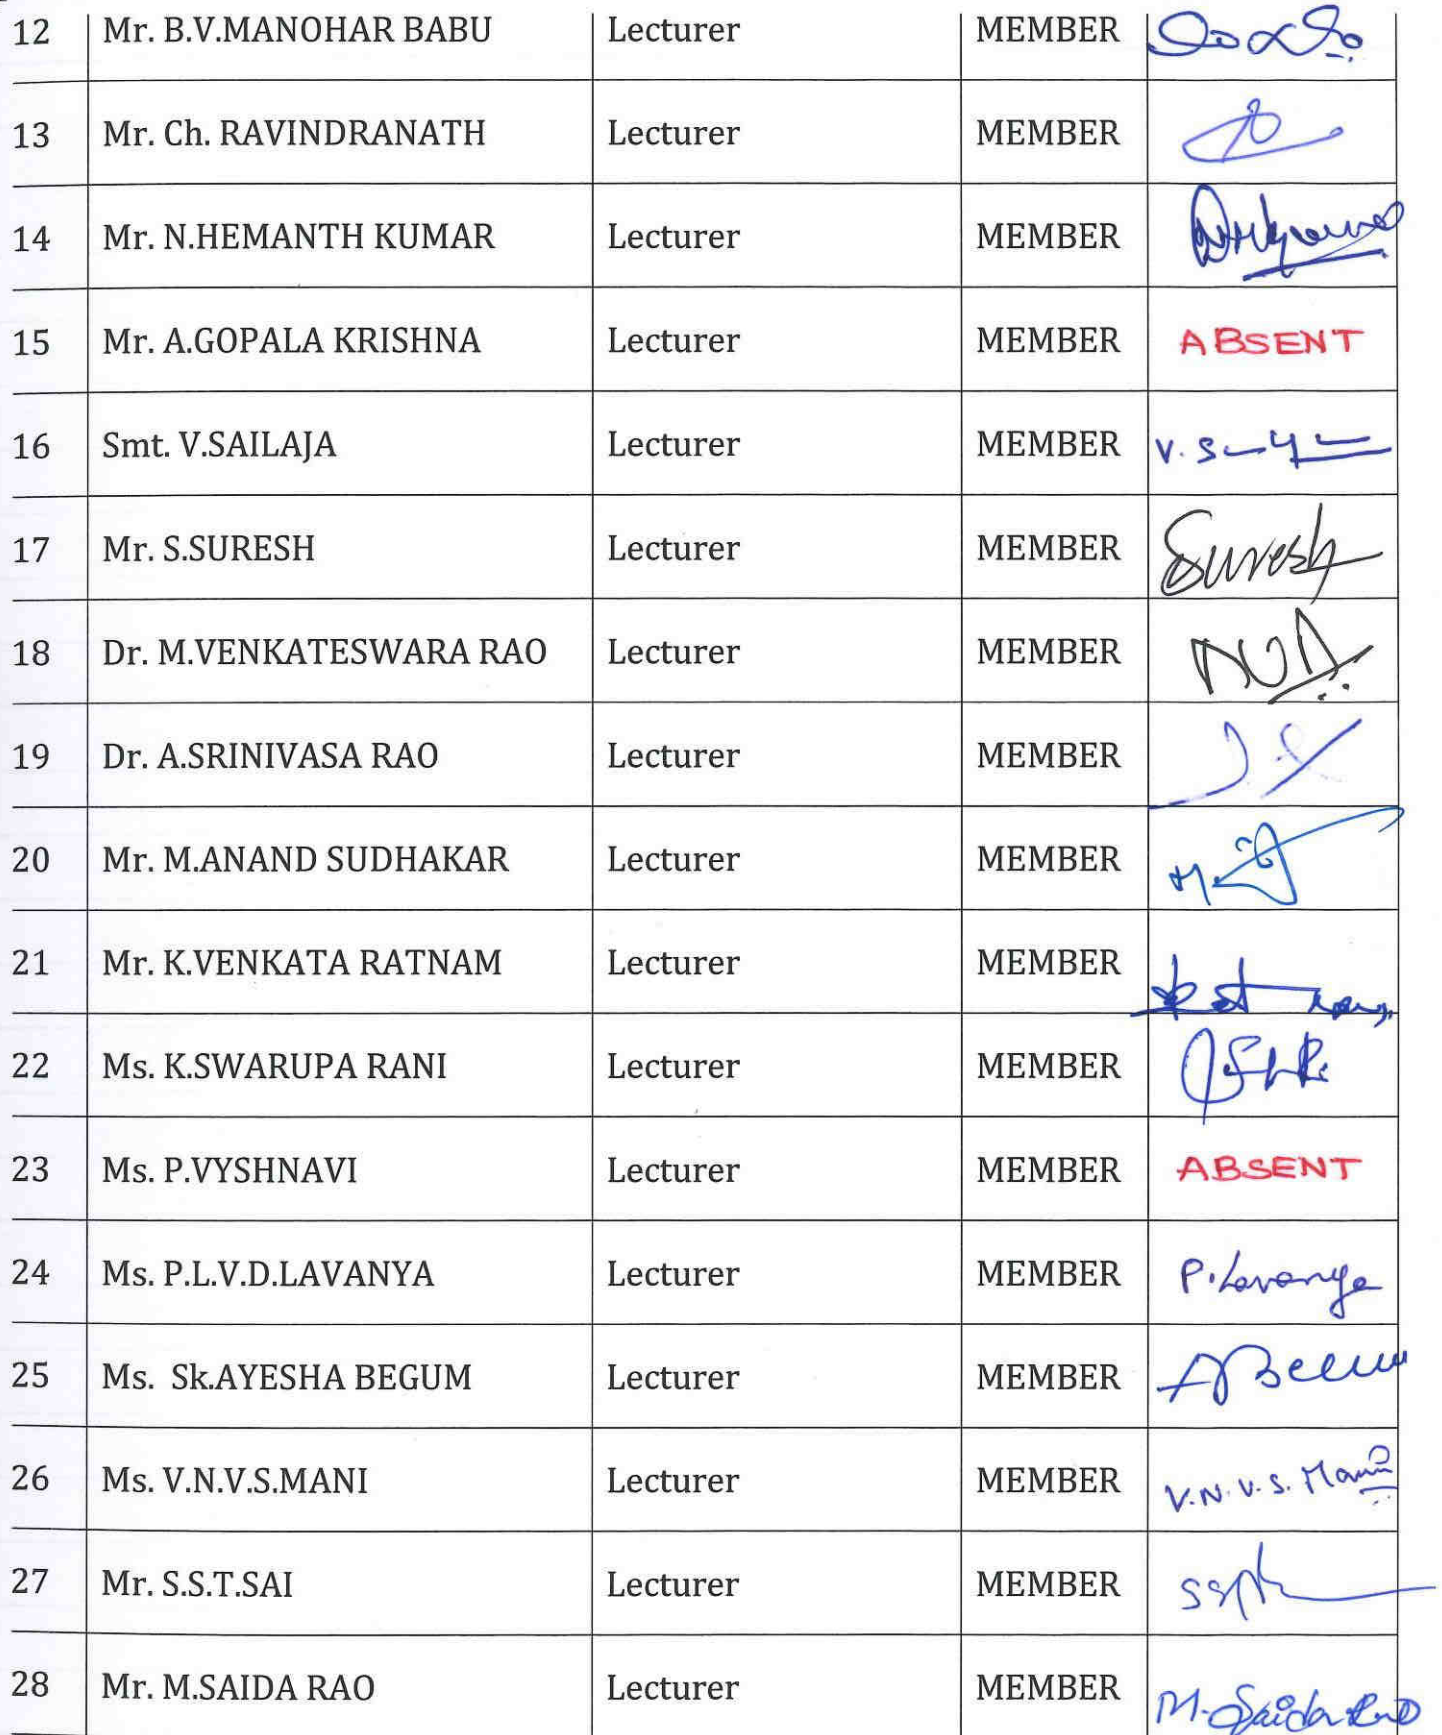 12 Mr. B.V.MANOHAR BABU Lecturer MEMBER
13 Mr. Ch. RAVINDRANATH Lecturer MEMBER
14 Mr. N.HEMANTH KUMAR Lecturer MEMBER
15 Mr. A.GOPALA KRISHNA Lecturer MEMBER ABSENT
16 Smt. V.SAILAJA Lecturer MEMBER
17 Mr. S.SURESH Lecturer MEMBER Suresh
18 Dr. M.VENKATESWARA RAO Lecturer MEMBER
19 Dr. A.SRINIVASA RAO Lecturer MEMBER
20 Mr. M.ANAND SUDHAKAR Lecturer MEMBER
21 Mr. K.VENKATA RATNAM Lecturer MEMBER
22 Ms. K.SWARUPA RANI Lecturer MEMBER
23 Ms. P.VYSHNAVI Lecturer MEMBER ABSENT
24 Ms. P.L.V.D.LAVANYA Lecturer MEMBER P.Lavanya
25 Ms. Sk.AYESHA BEGUM Lecturer MEMBER
26 Ms. V.N.V.S.MANI Lecturer MEMBER V.N.V.S. Mani
27 Mr. S.S.T.SAI Lecturer MEMBER
28 Mr. M.SAIDA RAO Lecturer MEMBER M. Saida Rao